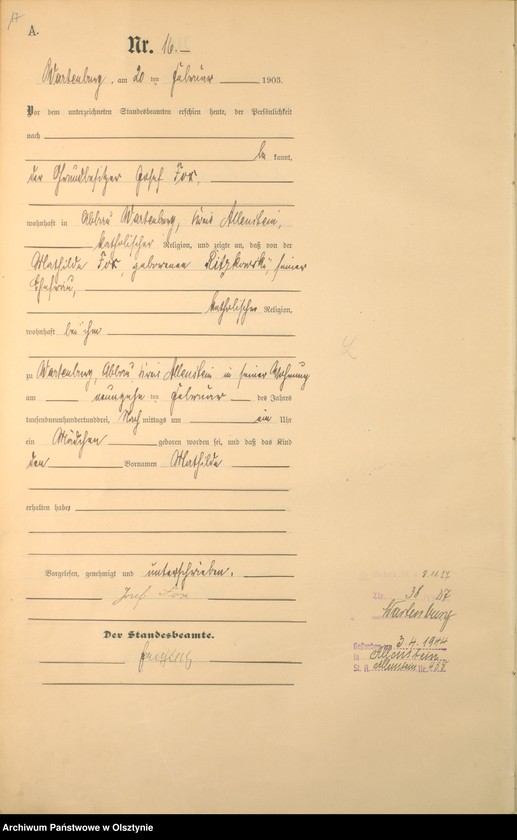 A.
Nr. 16.
Wartenburg, am 20 ten Februar 1903.
Vor dem unterzeichneten Standesbeamten erschien heute, der Persönlichkeit
nach
be kannt,
der Grundbesitzer Josef Fox,
wohnhaft in Abbau Wartenburg, Kreis Allenstein,
katholischer Religion, und zeigte an, daß von der
Mathilde Fox, geborenen seiner
Ehefrau,
katholischer Religion,
wohnhaft bei ihm
zu Wartenburg, Abbau, Kreis Allenstein in seiner Wohnung
am ten Februar des Jahres
tausendneunhundertunddrei, Nach mittags um ein Uhr
ein Mädchen geboren worden sei, und daß das Kind
den Vornamen Mathilde
erhalten habe
Vorgelesen, genehmigt und unterschrieben.
Josef Fox
Der Standesbeamte.
Nr. 38
Wartenburg
Gestorben am 3.4.1944
in Allenstein
St. A. Allenstein Nr.
Archiwum Państwowe w Olsztynie